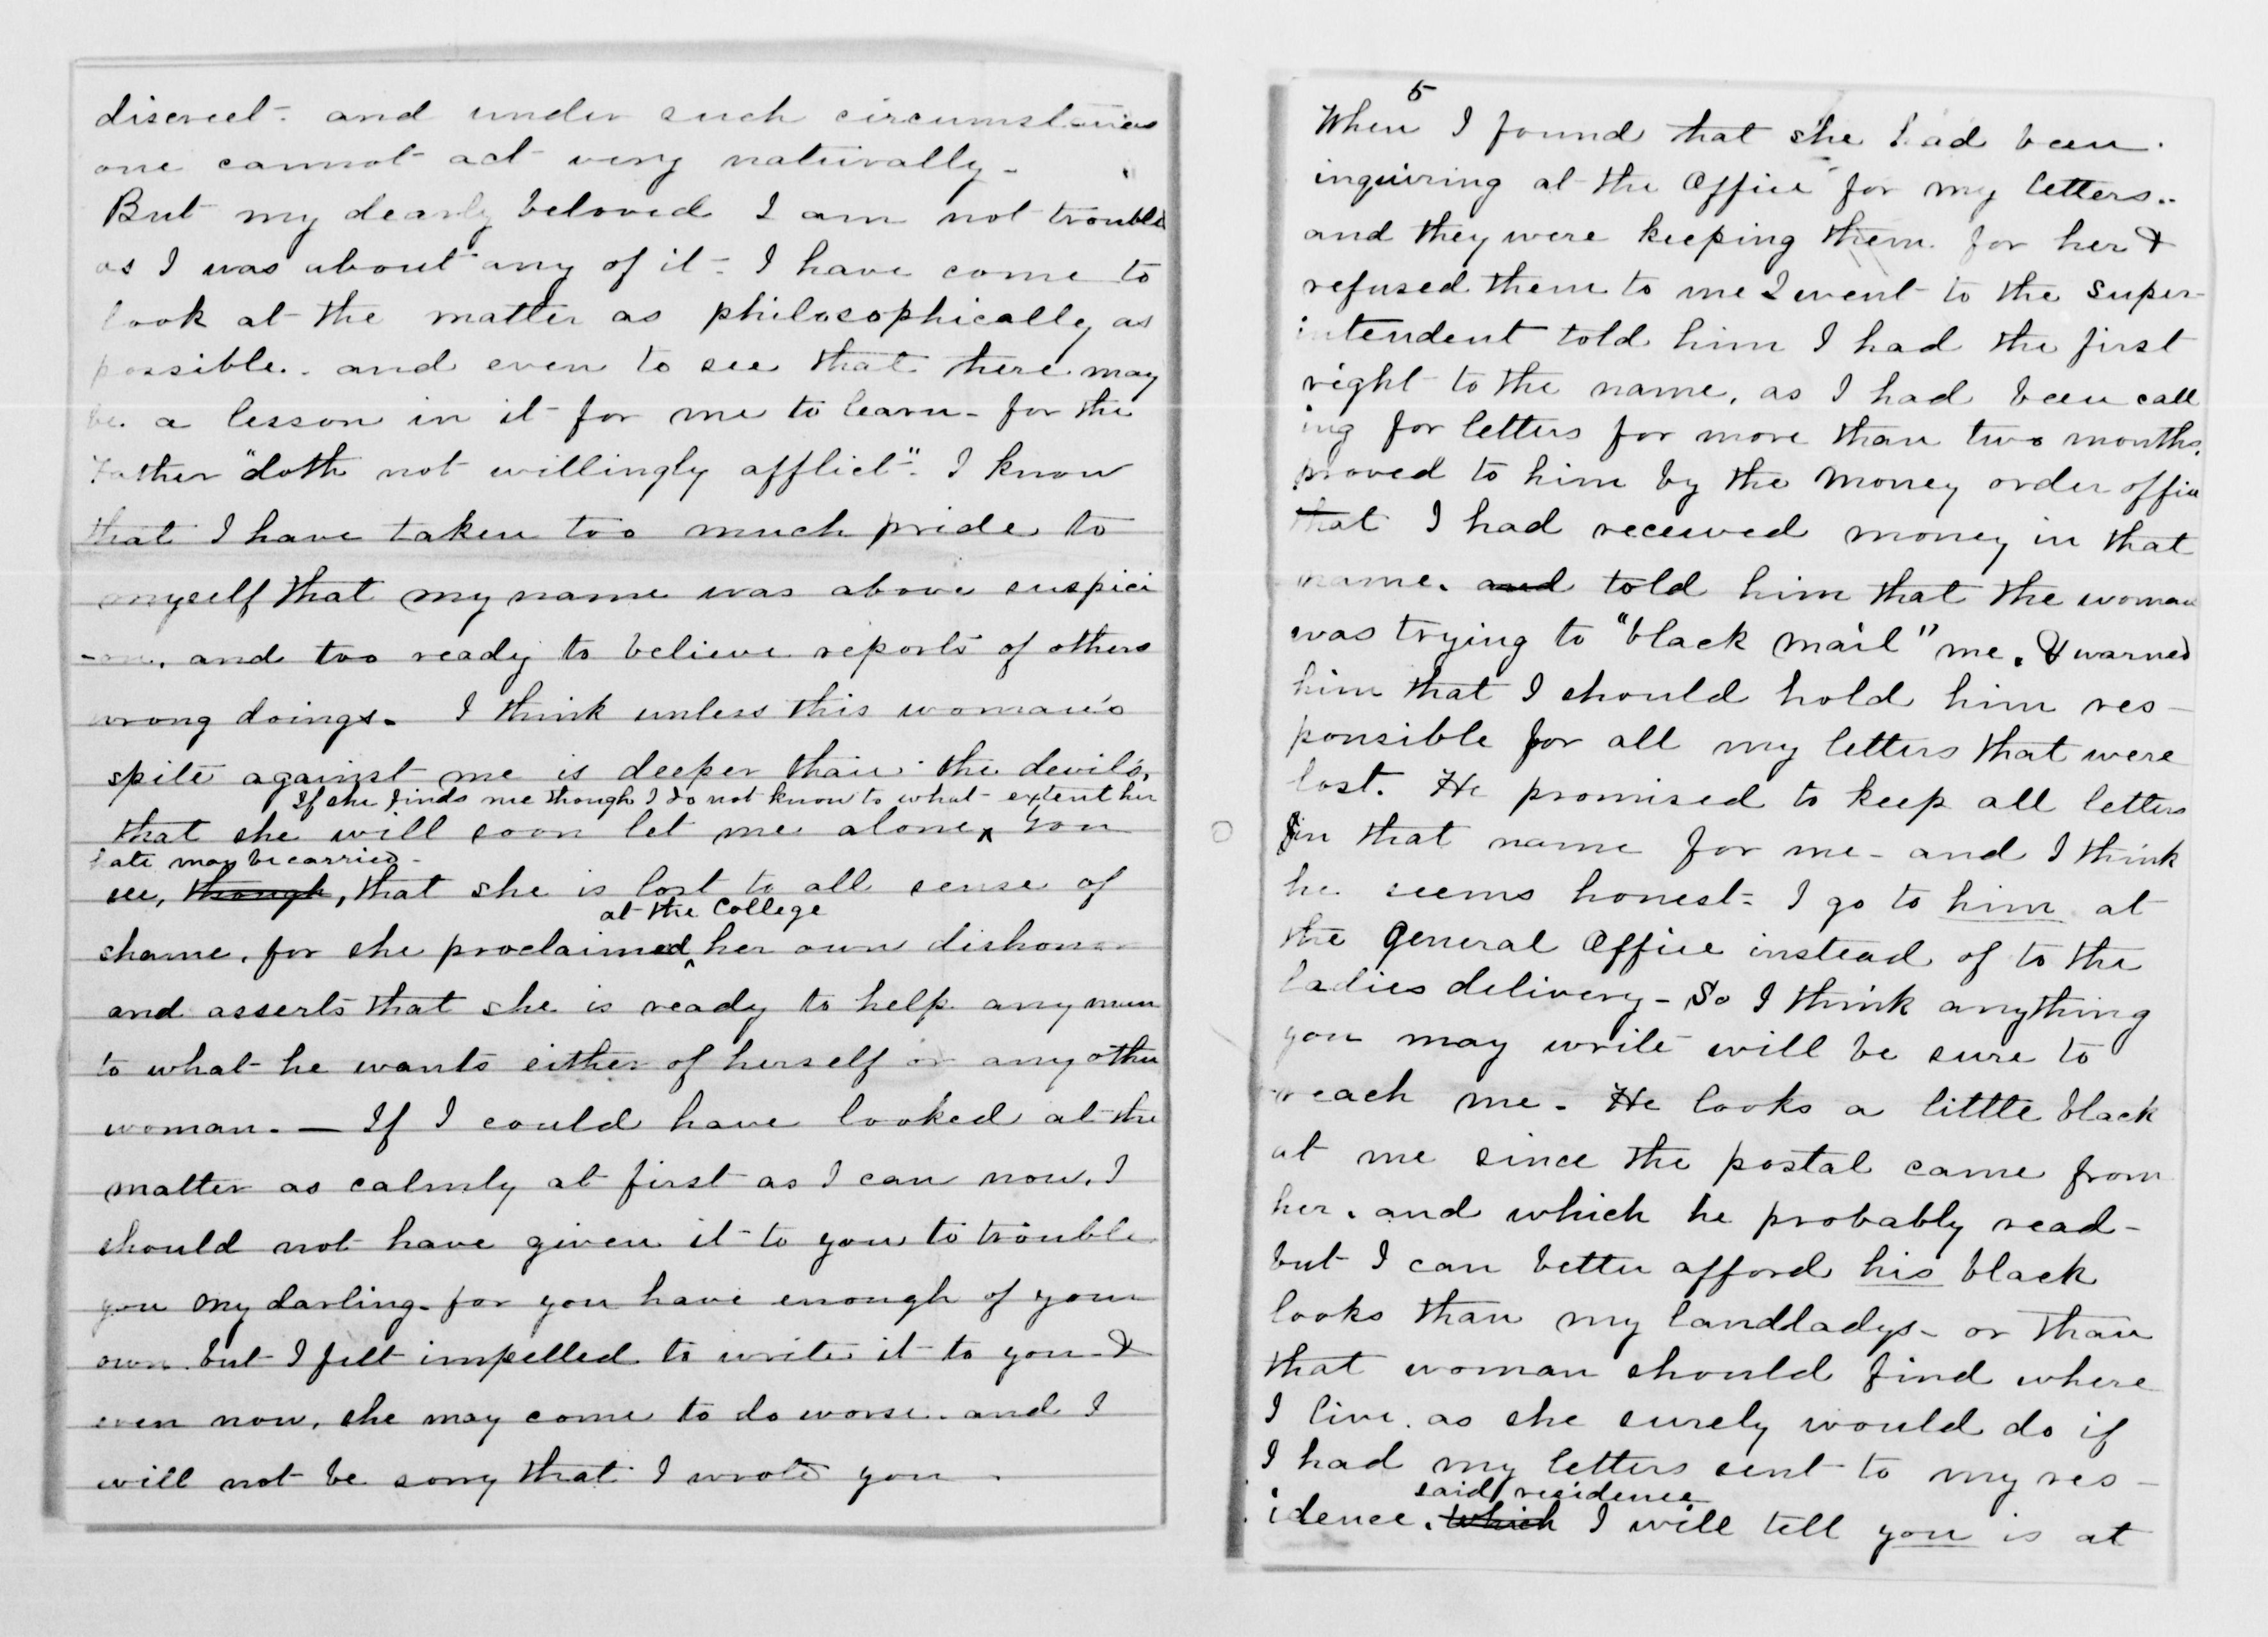 discreet - and under such circumstances
one cannot act very naturally -
But my dearly beloved I am not troubled
as I was about any of it - I have come to
look at the matter as philosophically as
possible. and even to see that there may
be a lesson in it for me to learn - for the
Father "doth not willingly afflict". I know
that I have taken too much pride to
myself that my name was above suspici
-on, and too ready to believe reports of others
wrong doings. I think unless this woman's
spite against me is deeper than the devil's,
If she finds me though I do not know to what extent her
that she will soon let me alone ^ You
hate may be carried -
see, though, that she is lost to all sense of
at the College
shame, for she proclaimed ^ her own dishonor
and asserts that she is ready to help any man
to what he wants either of herself or any other
woman. — If I could have looked at the
matter as calmly at first as I can now, I
should not have given it to you to trouble
you my darling - for you have enough of your
own but I felt impelled to write it to you &
even now, she may come to do worse. and I
will not be sorry that I wrote you.
5
When I found that she had been
inquiring at the Office for my letters..
and they were keeping them for her &
refused them to me I went to the Super-
intendent told him I had the first
right to the name, as I had been call
ing for letters for more than two months,
proved to him by the Money order office
that I had received money in that
name. and told him that the woman
was trying to "black mail" me. & warned
him that I should hold him res-
ponsible for all my letters that were
lost. He promised to keep all letters
in that name for me - and I think
he seems honest - I go to him at
the General Office instead of to the
ladies delivery - So I think anything
you may write will be sure to
reach me. He looks a little black
at me since the postal came from
her. and which he probably read -
but I can better afford his black
looks than my landladys - or than
that woman should find where
I live. as she surely would do if
I had my letters sent to my res-
said residence
idence. which I will tell you is at